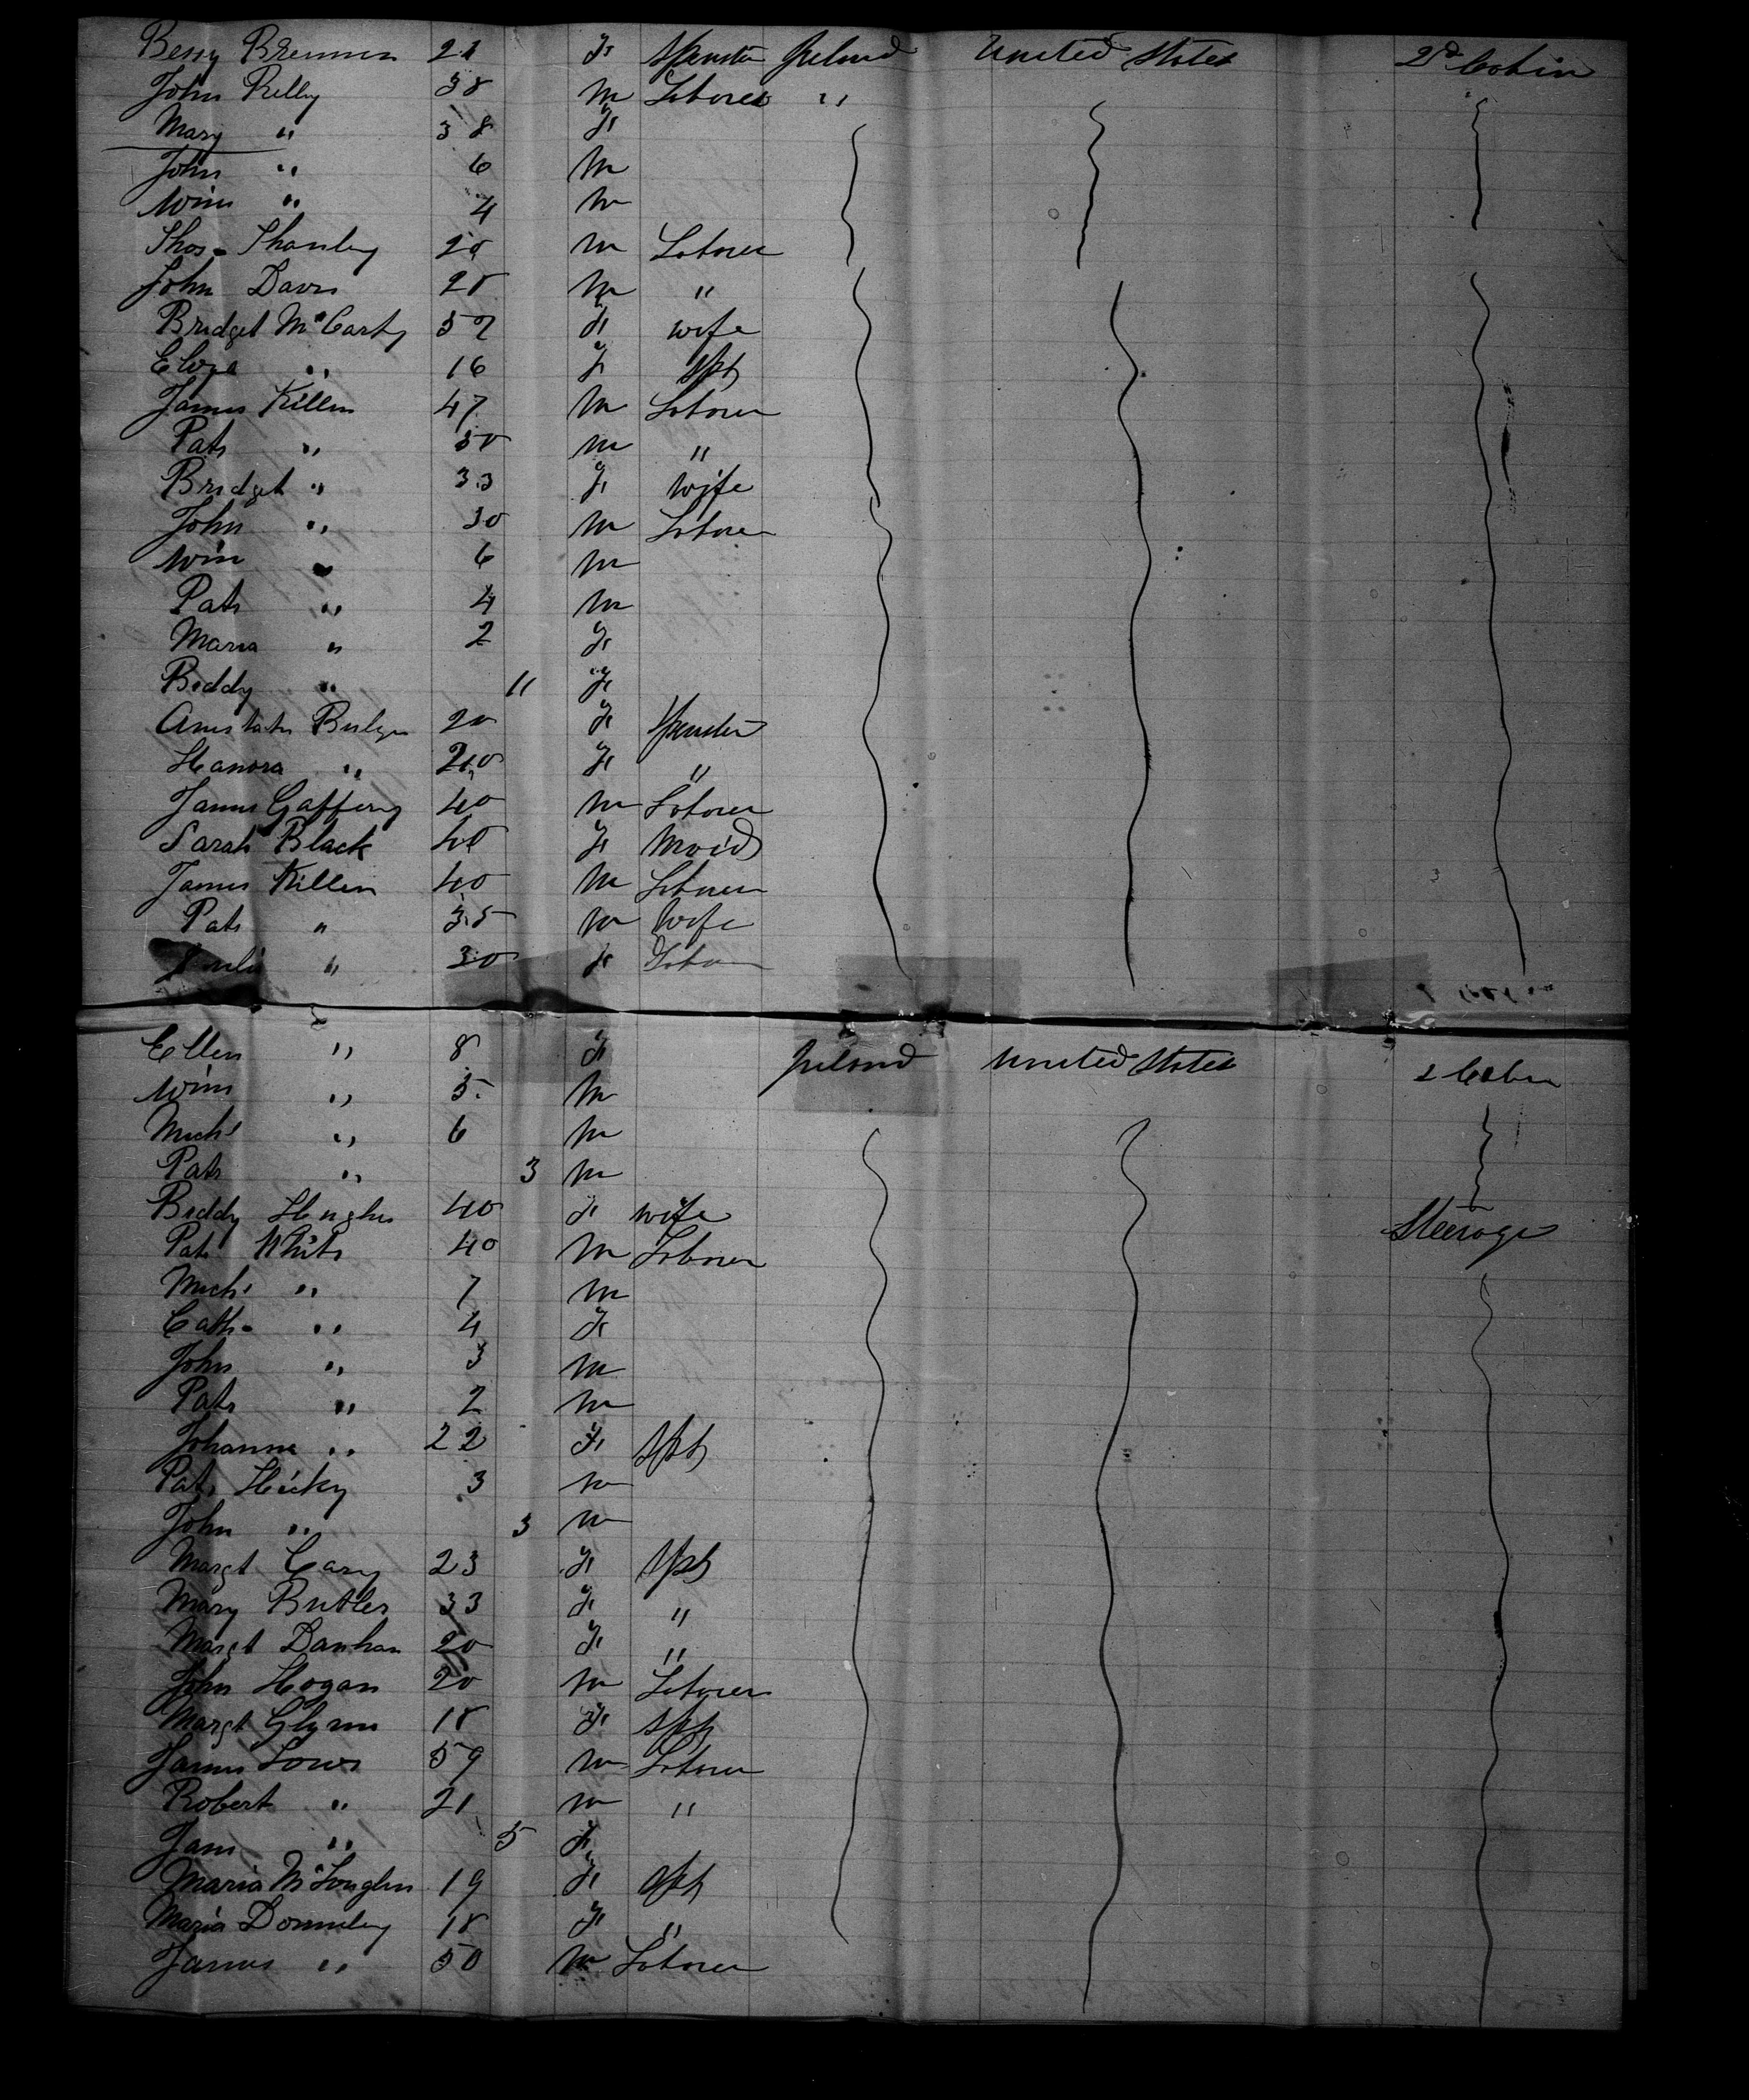 Bessy Brennan 21 F Spinster Ireland United States 2d Cabin
John Reilly 38 M Laborer "
Mary " 38 F
John " 6 M
Wm " 4 M
Thos. Shanley 20 M Laborer
John Davis 28 M "
Bridget McCarty 52 F wife
Eliza " 16 F Spt
James Killen 47 M Laborer
Pat " 50 M "
Bridget " 33 F wife
John " 30 M Laborer
Wm " 6 M
Pat " 4 M
Maria " 2 F
Biddy " 11 F
20 F Spinster
Hanora " F "
James Gaffeny 40 M Laborer
Sarah Black 40 F Maid
James Killen 40 M Laborer
Pat " 35 M Wife
" 30 F Labor
Ellen " 8 F Ireland United States 2 Cabin
Wm " 5 M
Michl " 6 M
Pat " 3 M
Biddy Hughes 40 F wife Steerage
Pat White 40 M Laborer
Michl " 7 M
Cath " 4 F
John " 3 M
Pat " 2 M
Johanna " 22 F Spt
Pat Hicky 3 M
John " 3 M
Margt Cary 23 F Spt
Mary Butler 33 F "
Margt 20 F "
John Hogan 20 M Laborer
Margt Glynn 18 F Spt
James Lows 59 M Laborer
Robert " 21 M "
Jane " 5 F
Maria McLoughlin 19 F Spt
Maria Donneley 18 F "
James " 50 M Laborer